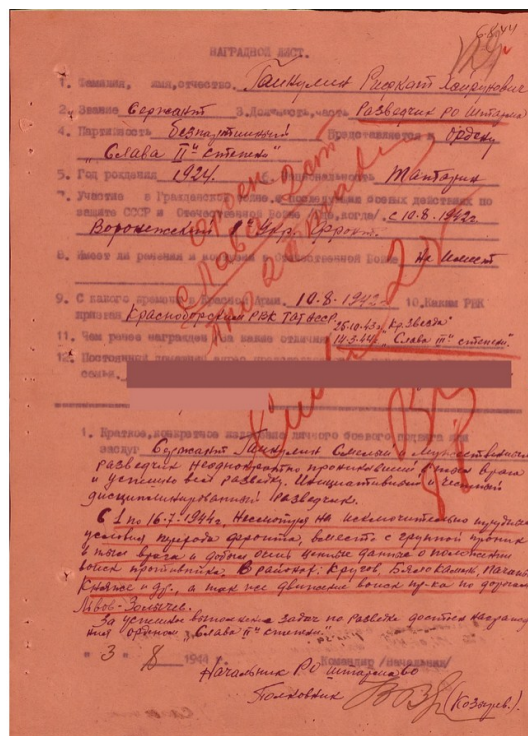 НАГРАДНОЙ ЛИСТ.
1. Фамилия, имя, отчество. Гайнулин
2. Звание Сержант 3. Должность, часть Разведчик РО Штарма
4. Партийность безпартийный Представляется к Ордену
"Слава IIй степени"
5. Год рождения 1924. 6. Национальность Татарин
7. Участие в Гражданской войне, и последующих боевых действиях по
защите СССР и Отечественной войне /где, когда/ с 10.8.1942г
Воронежский, 1 Укр. Фронт.
8. Имеет ли ранения и контузии в Отечественной войне Не имеет
9. С какого времени в Красной Армии. 10.8.1942г. 10. Каким РВК
призван Красноборским РВК ТАТАССР.
11. Чем ранее награжден /за какие отличия 25.10.43г "Кр. Звезда"
14.3.44г "Слава IIIй степени".
12. Постоянный домашний адрес
семьи.
1. Краткое, конкретное изложение личного боевого подвига или
заслуг Сержант Гайнулин Смелый и мужественный
разведчик неоднократно проникавший в тыл врага
и успешно вел разведку. Инициативный и честный
дисциплинированный разведчик.
С 1 по 16.7.1944г, несмотря на исключительно трудные
условия перехода фронта, вместе с группой проник
в тыл врага и добыл очень ценные данные о положении
войск противника. В районах: Кругов, Бялокамень,
Княже и др., а так же движении войск пр-ка по дороге
Львов-Золычев.
За успешное выполнение задач по разведке достоин награжде
ния орденом "Слава IIй степени"
" 3 " 8 1944 г Командир /Начальник/
Начальник РО штарма
Полковник (Козырев.)